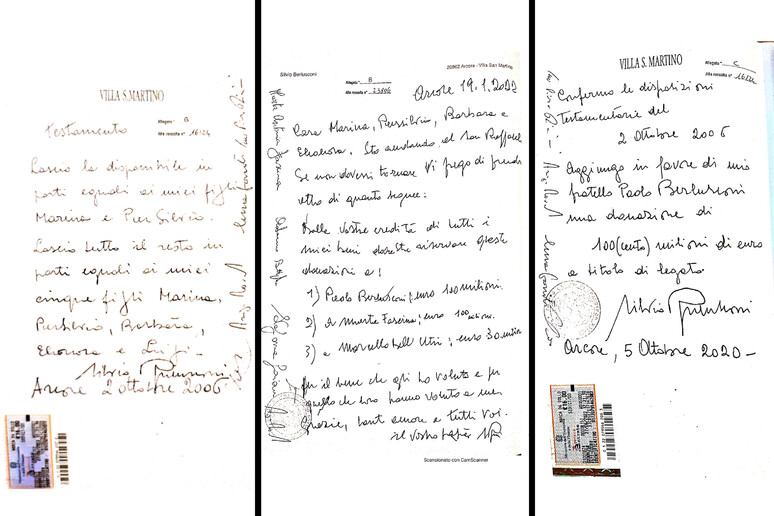 VILLA S. MARTINO
Allegato "B
Alla raccolta n° 16124
Testamento
Lascio la disponibile in
parti eguali ai miei figli
Marina e Pier Silvio.
Lascio tutto il resto in
parti eguali ai miei
cinque figli Marina,
Piersilvio, Barbara,
Eleonora e Luigi -
Silvio Berlusconi
Arcore 2 ottobre 2006
Silvio Berlusconi
20862 Arcore - Villa San Martino
Allegato " B
Alla raccolta n°
Arcore 19.1.2022
Cara Marina, Piersilvio, Barbara e
Eleonora, Sto andando al San Raffaele
Se non dovessi tornare Vi prego di prendere
atto di quanto segue:
Dalle vostre eredità di tutti i
miei beni dovreste riservare queste
donazioni a:
1) Paolo Berlusconi; euro 100 milioni.
2) a Marta Fascina; euro 100
3) a Marcello Dell'Utri; euro 30 milioni
per il bene che gli ho voluto e per
quello che loro hanno voluto a me.
Grazie, tanto amore a tutti voi.
il Vostro papà
Scansionato con CamScanner
VILLA S. MARTINO
Allegato " C
Alla raccolta n° 16124
Confermo le disposizioni
Testamentarie del
2 Ottobre 2006
Aggiungo in favore di mio
fratello Paolo Berlusconi
una donazione di
100 (cento) milioni di euro
a titolo di legato
Silvio Berlusconi
Arcore, 5 Ottobre 2020 -